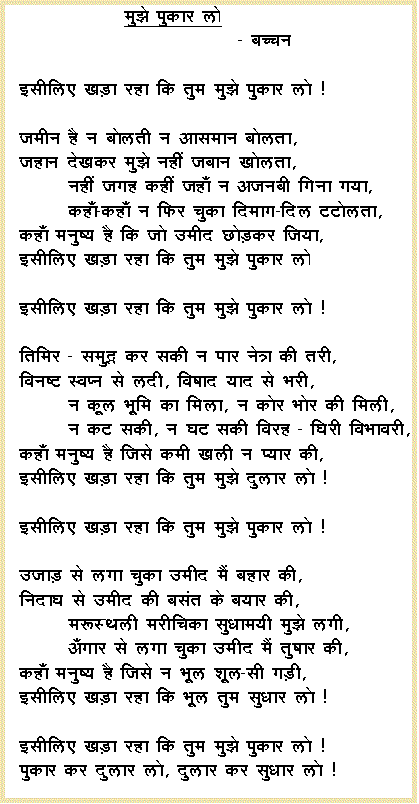 मुझे पुकार लो
- बच्चन
इसीलिए खड़ा रहा कि तुम मुझे पुकार लो !
जमीन है न बोलती न आसमान बोलता,
जहान देखकर मुझे नहीं जबान खोलता,
नहीं जगह कहीं जहाँ न अजनबी गिना गया,
कहाँ-कहाँ न फिर चुका दिमाग-दिल टटोलता,
कहाँ मनुष्य है कि जो उमीद छोड़कर जिया,
इसीलिए खड़ा रहा कि तुम मुझे पुकार लो
इसीलिए खड़ा रहा कि तुम मुझे पुकार लो !
तिमिर - समुद्र कर सकी न पार नेत्र की तरी,
विनष्ट स्वप्न से लदी, विषाद याद से भरी,
न कूल भूमि का मिला, न कोर भोर की मिली,
न कट सकी, न घट सकी विरह - घिरी विभावरी,
कहाँ मनुष्य है जिसे कमी खली न प्यार की,
इसीलिए खड़ा रहा कि तुम मुझे दुलार लो !
इसीलिए खड़ा रहा कि तुम मुझे पुकार लो !
उजाड़ से लगा चुका उमीद मैं बहार की,
निदाघ से उमीद की बसंत के बयार की,
मरूस्थली मरीचिका सुधामयी मुझे लगी,
अँगार से लगा चुका उमीद मैं तुषार की,
कहाँ मनुष्य है जिसे न भूल शूल-सी गड़ी,
इसीलिए खड़ा रहा कि भूल तुम सुधार लो !
इसीलिए खड़ा रहा कि तुम मुझे पुकार लो !
पुकार कर दुलार लो, दुलार कर सुधार लो !